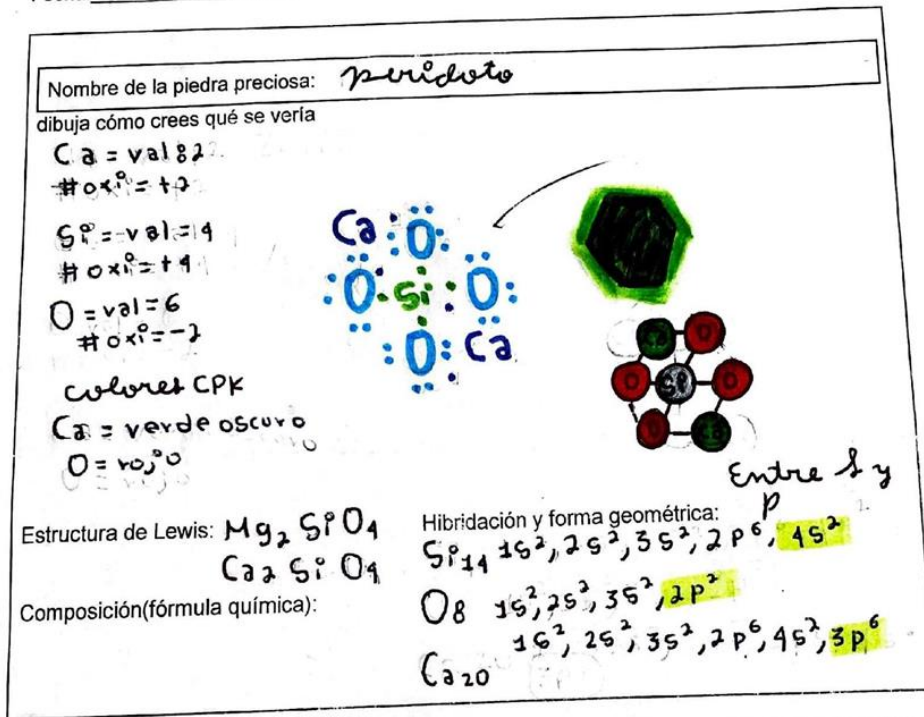 Nombre de la piedra preciosa: peridoto
dibuja cómo crees qué se vería
Ca = val: 2
# oxi = +2
Si = val = 4
# oxi = +4
O = val = 6
# oxi = -2
colores CPK
Ca = verde oscuro
O = rojo
Ca O
O Si O
O Ca
Ca O
O Si O
O Ca
Entre s y p
Estructura de Lewis: Mg₂ SiO₄
Ca₂ SiO₄
Composición(fórmula química):
Hibridación y forma geométrica:
Si₁₄ 1s², 2s², 3s², 2p⁶, 4s²
O₈ 1s², 2s², 3s², 2p²
Ca₂₀ 1s², 2s², 3s², 2p⁶, 4s², 3p⁶